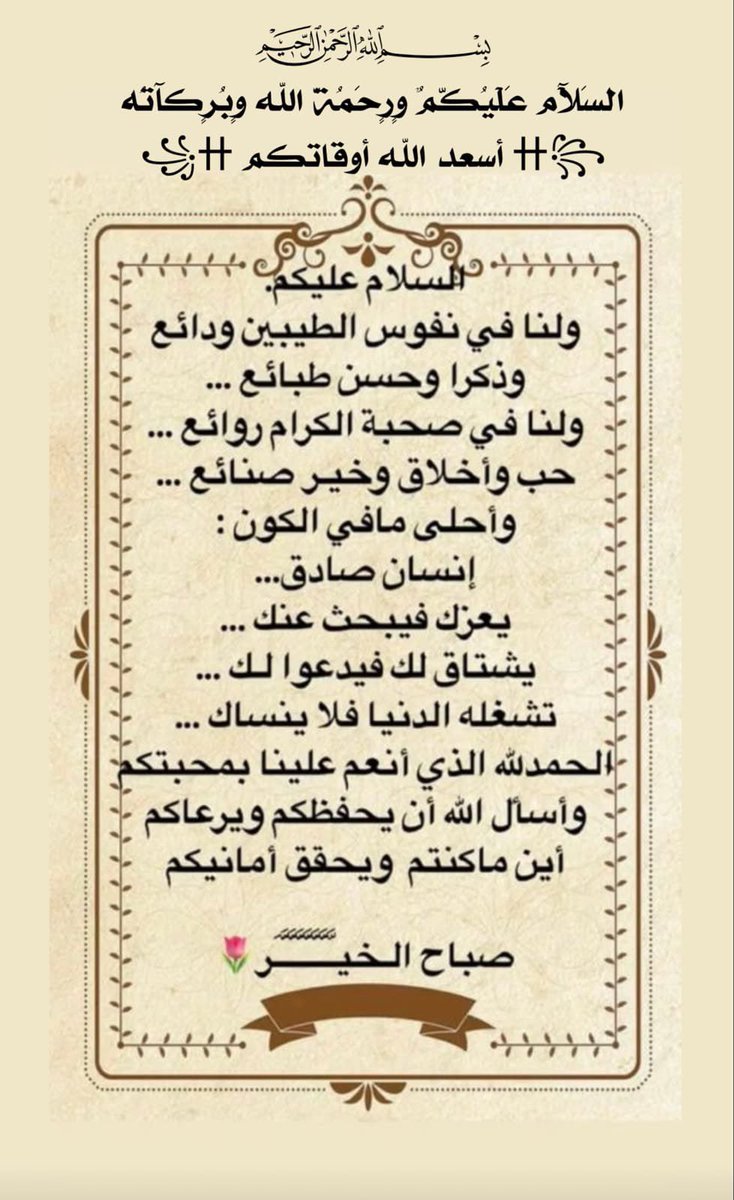 بِسْمِ اللهِ الرَّحْمٰنِ الرَّحِيْمِ
السَلآم عَلَيُكـّمٌ ورٍحَمُة اللّٰه وبُرٍكآتْه
꧁ أسعد اللّٰه أوقاتكم ꧂
السلام عليكم.
ولنا في نفوس الطيبين ودائع
وذكرا وحسن طبائع ...
ولنا في صحبة الكرام روائع ...
حب وأخلاق وخير صنائع ...
وأحلى مافي الكون :
إنسان صادق...
يعزك فيبحث عنك ...
يشتاق لك فيدعوا لك ...
تشغله الدنيا فلا ينساك ...
الحمدلله الذي أنعم علينا بمحبتكم
وأسأل الله أن يحفظكم ويرعاكم
أين ماكنتم ويحقق أمانيكم
صباح الخيـــــر🌷